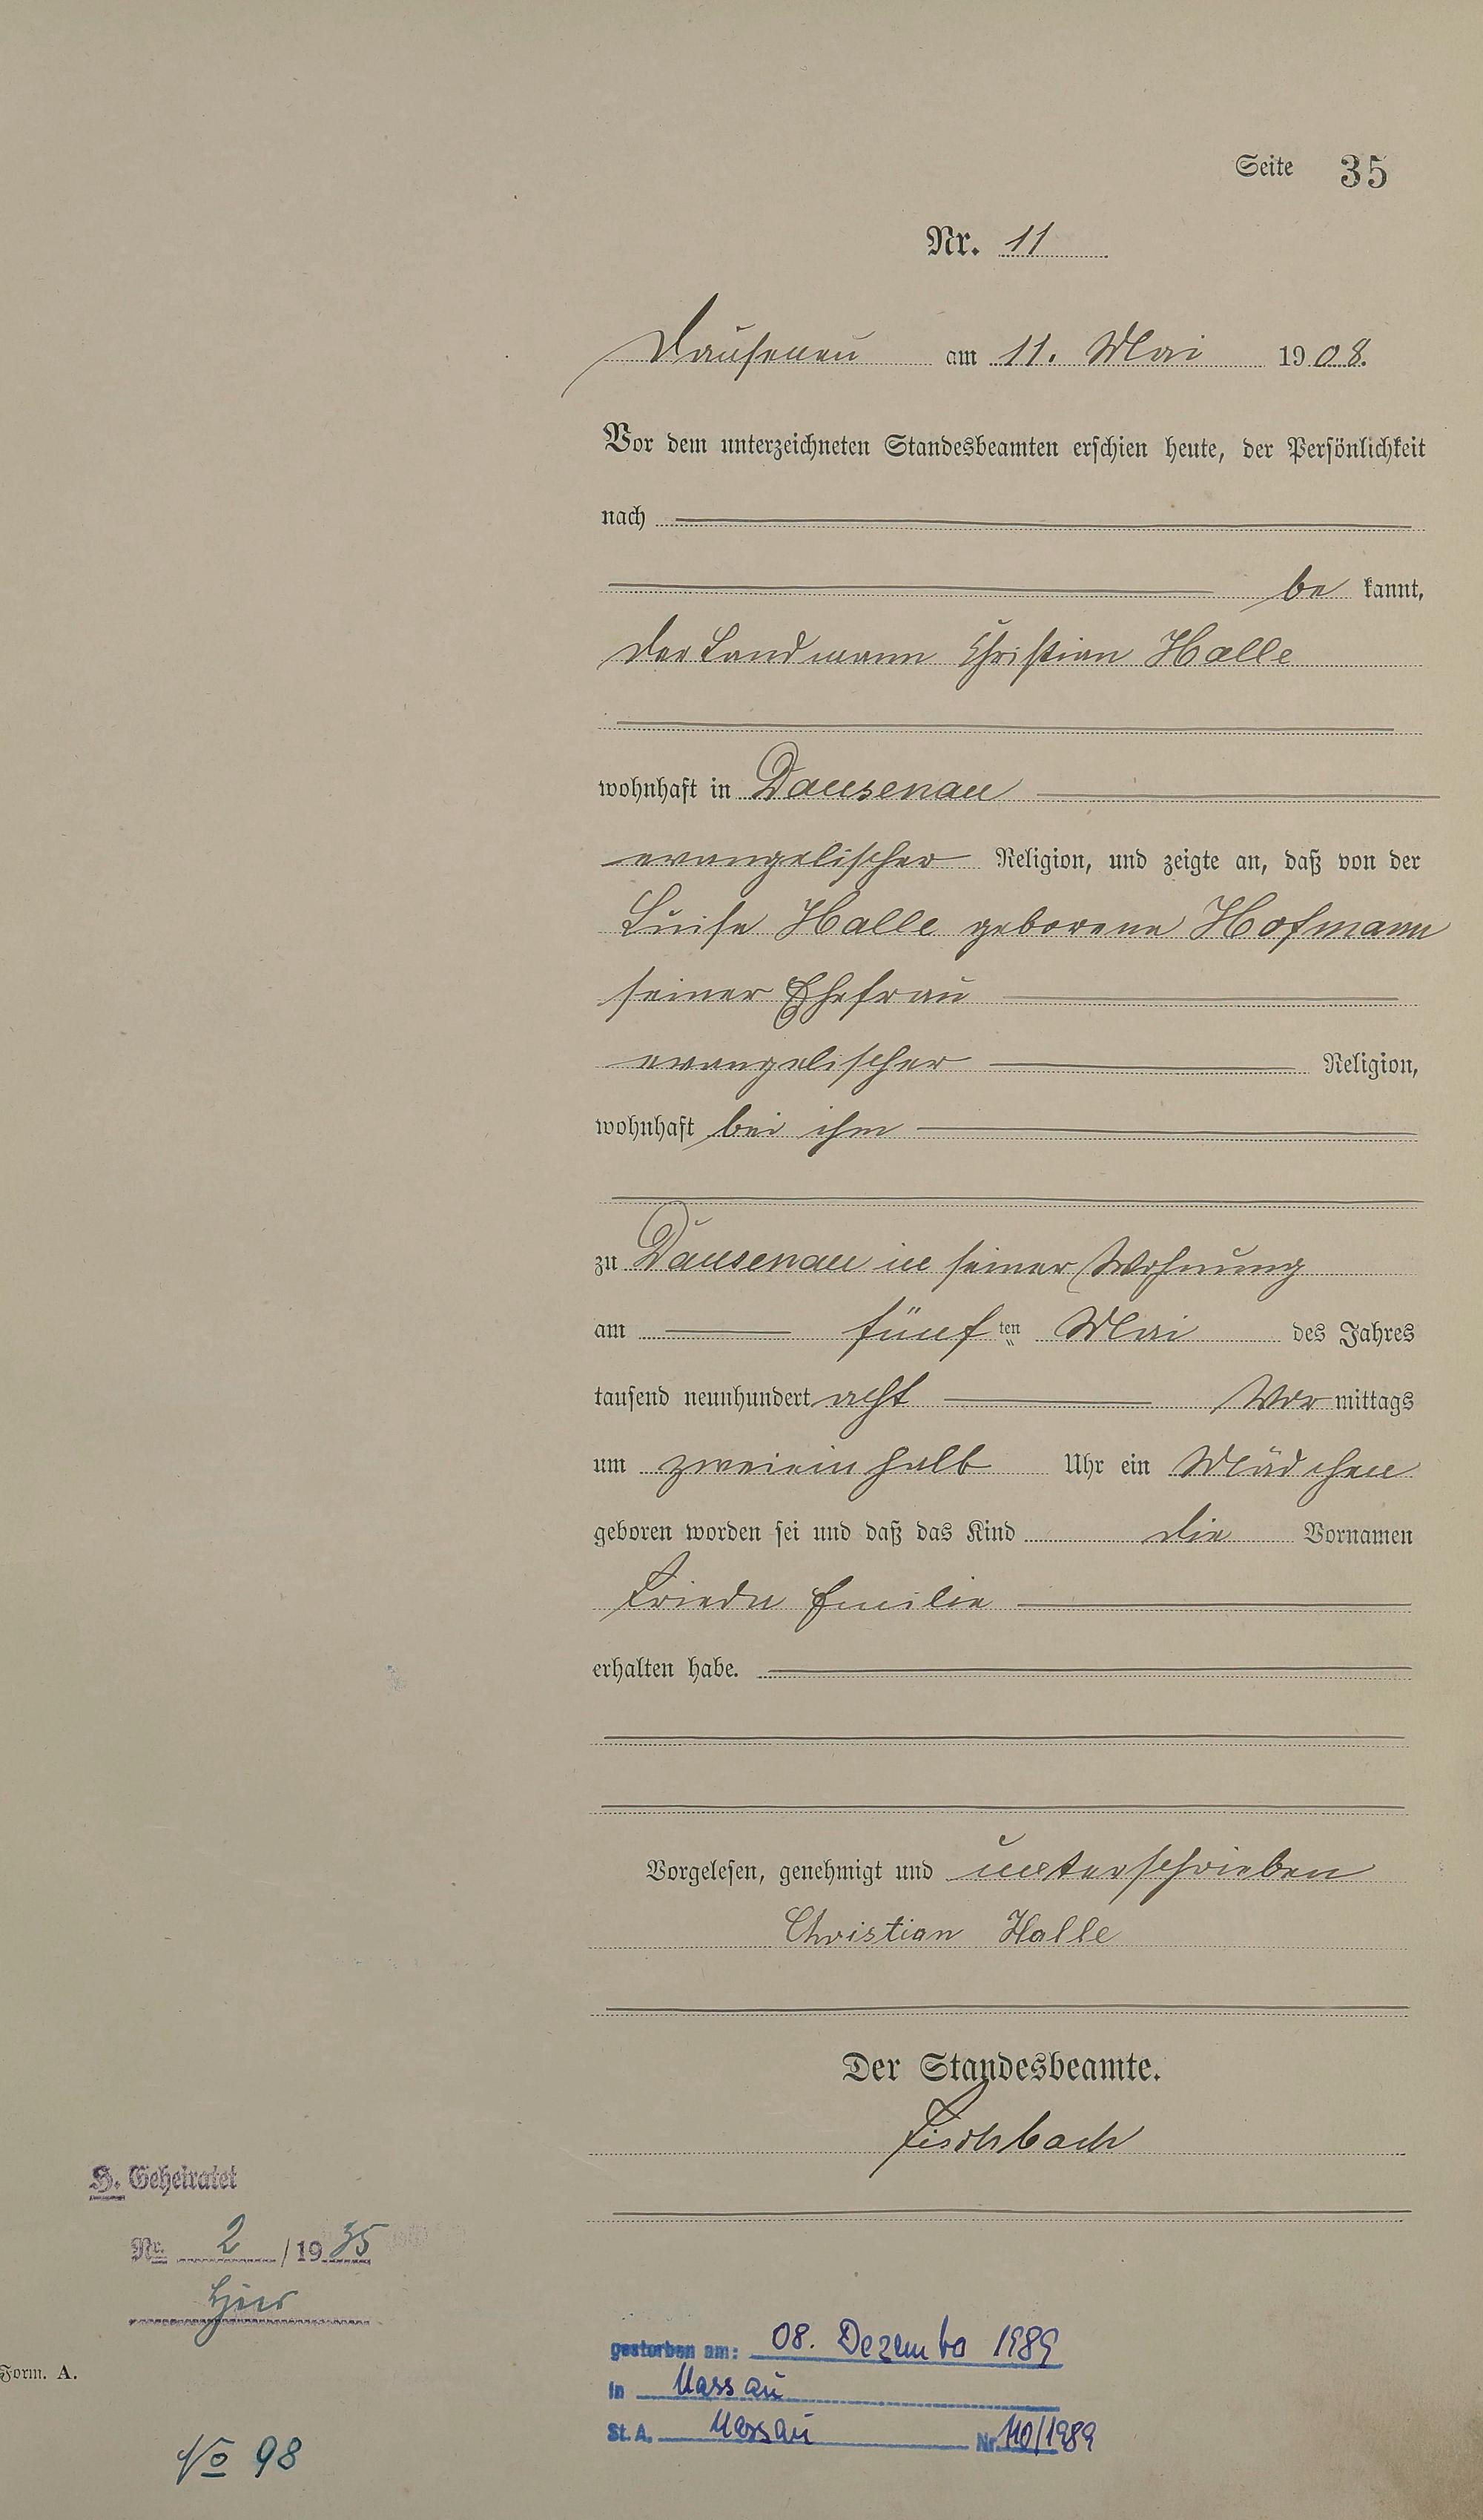 Seite 35
Nr. 11
Dausenau am 11. Mai 1908.
Vor dem unterzeichneten Standesbeamten erschien heute, der Persönlichkeit
nach
be kannt,
der Landmann Christian Halle
wohnhaft in Dausenau
evangelischer Religion, und zeigte an, daß von der
Luise Halle geborene Hofmann
seiner Ehefrau
evangelischer Religion,
wohnhaft bei ihm
zu Dausenau in seiner Wohnung
am fünf ten Mai des Jahres
tausend neunhundert acht Vor mittags
um zweiein halb Uhr ein Mädchen
geboren worden sei und daß das Kind die Vornamen
Frieda Emilie
erhalten habe.
Vorgelesen, genehmigt und unterschrieben
Christian Halle
Der Standesbeamte.
Fischbach
H. Geheiratet
Nr. 2 /1935
hier
gestorben am: 08. Dezember 1989
in Nassau
St. A. Nassau Nr. 110/1989
Form. A.
No 98